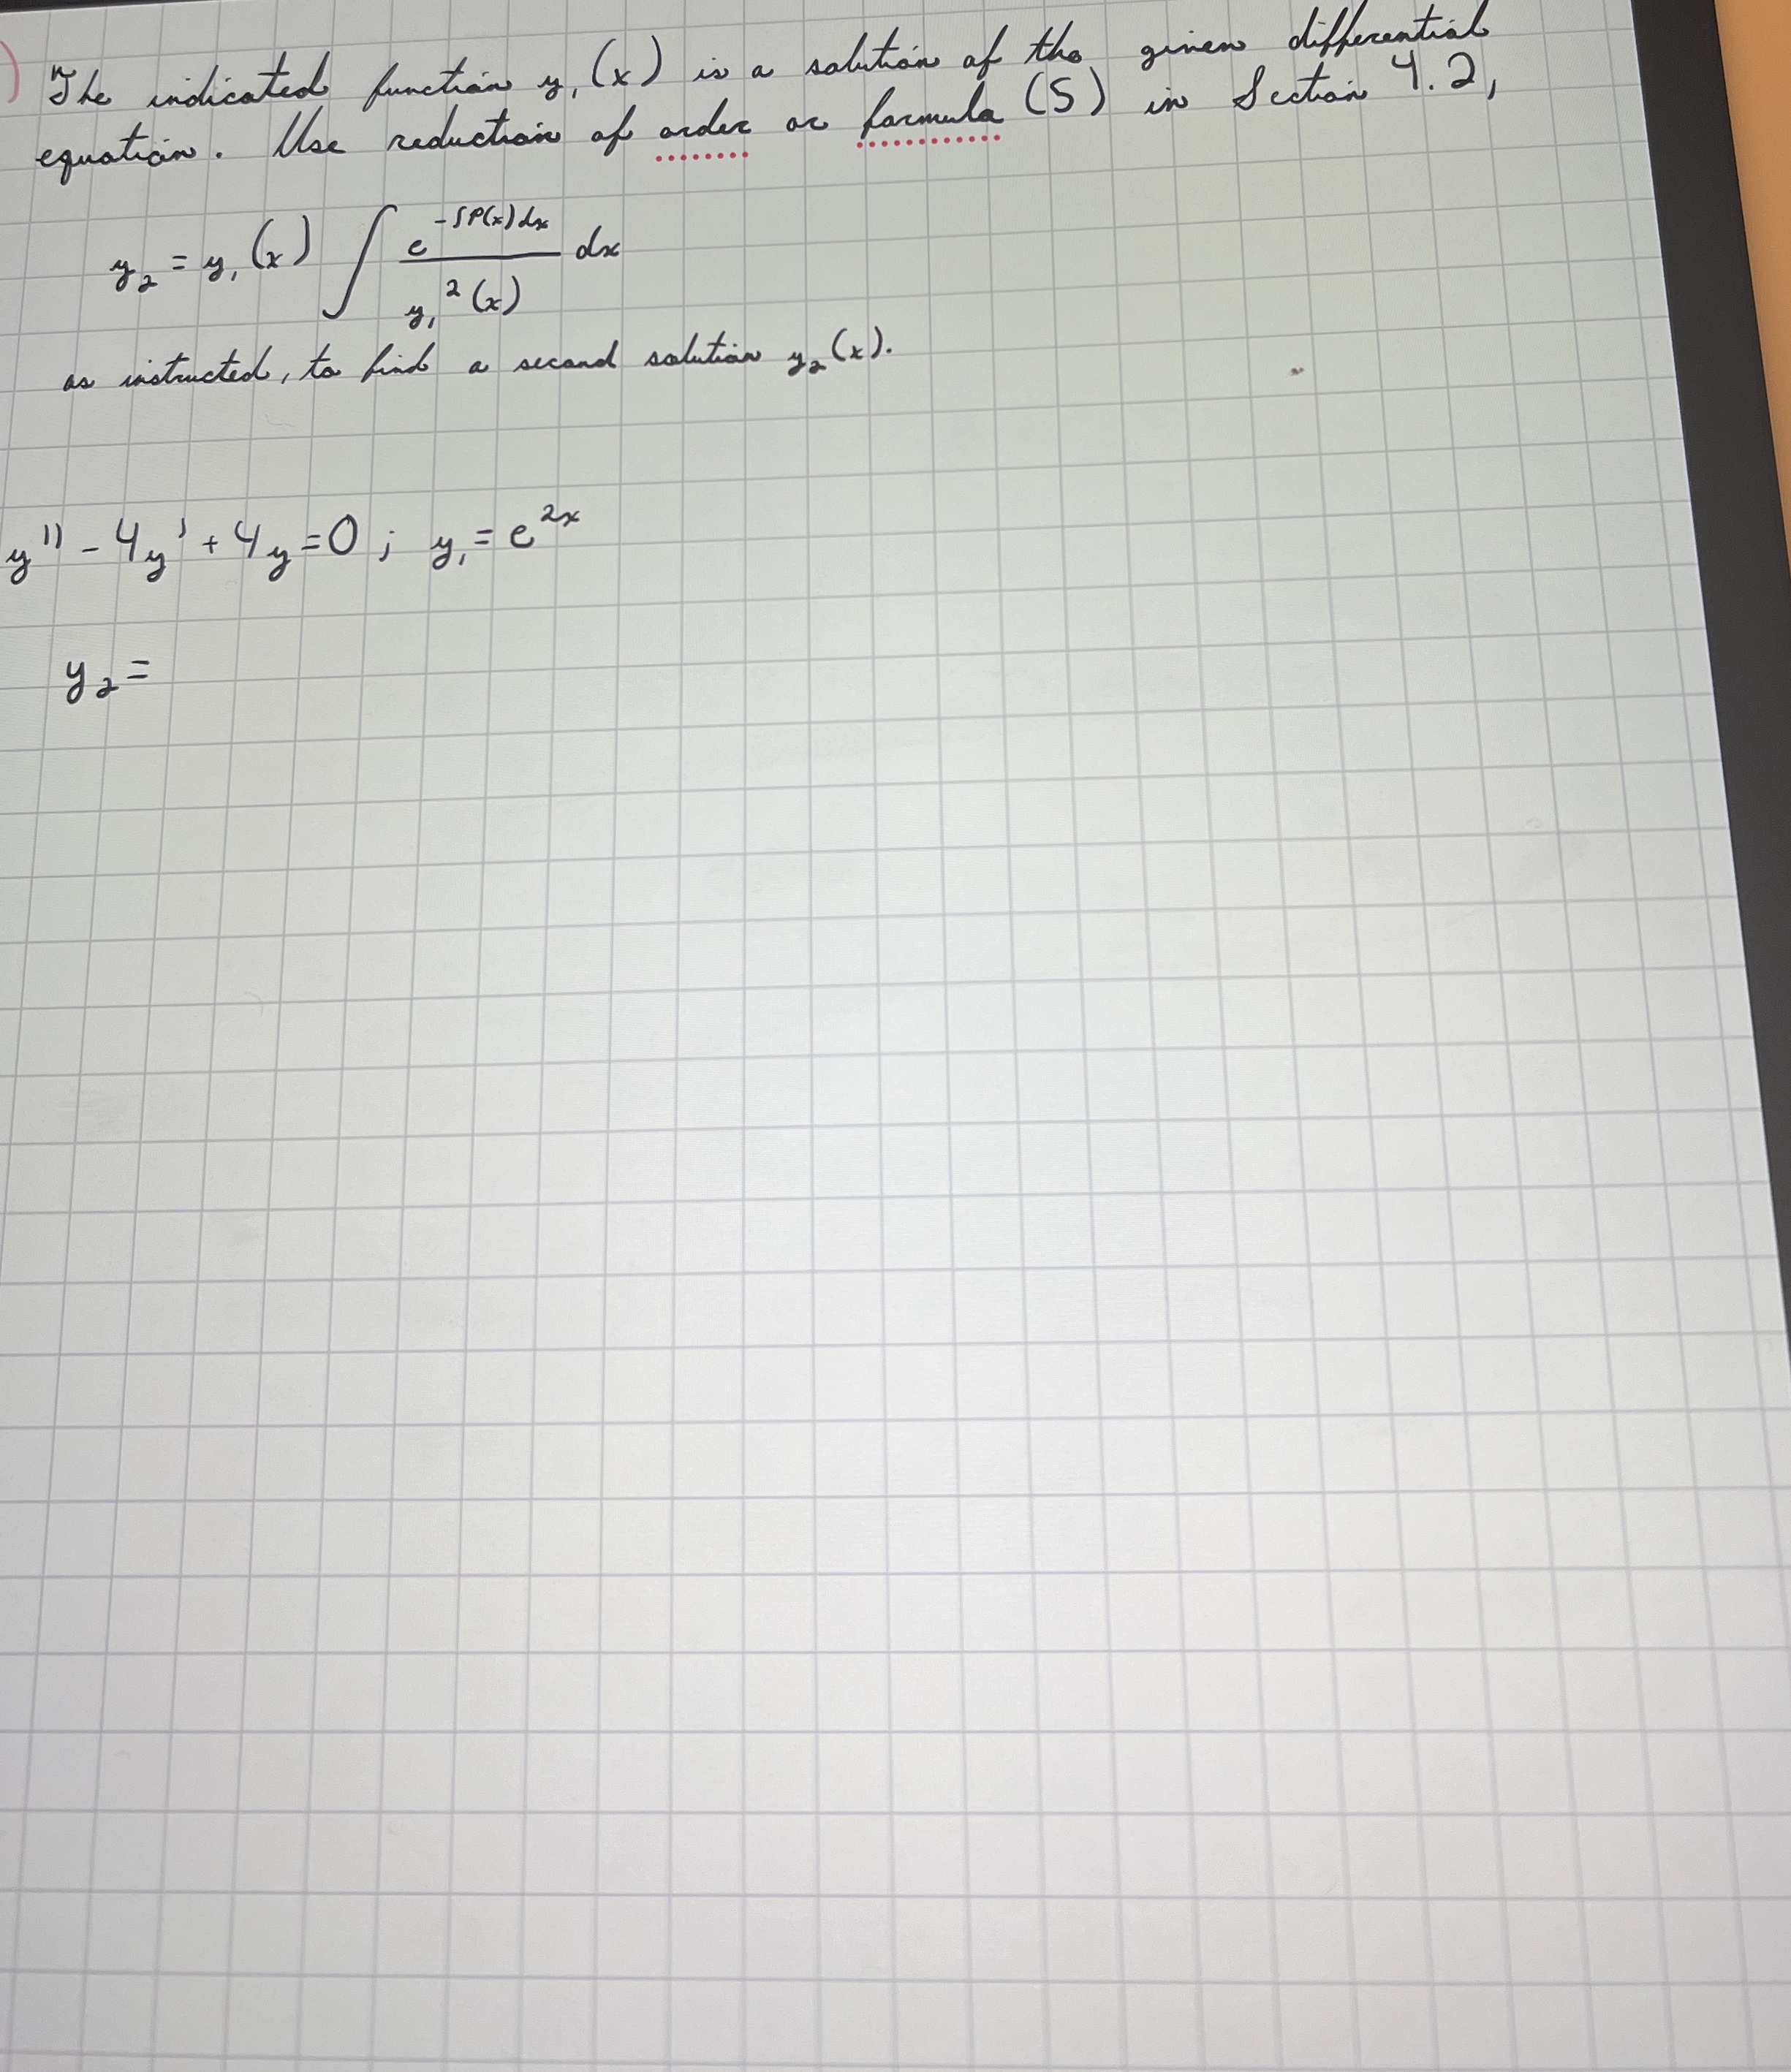 ) The indicated function y₁(x) is a solution of the given differential
equation. Use reduction of order or formula (5) in Section 4.2,
y₂ = y₁(x) ∫ e^(-∫P(x)dx) / y₁²(x) dx
as instructed, to find a second solution y₂(x).
y'' - 4y' + 4y = 0; y₁ = e^(2x)
y₂ =